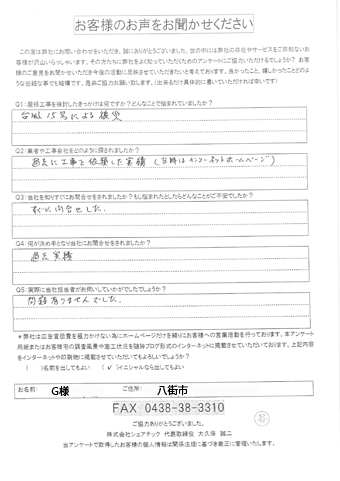 お客様のお声をお聞かせください
この度は弊社にお問い合わせをいただき、誠にありがとうございました。世の中には弊社の存在やサービスをご存知ないお
客様が沢山いらっしゃいます。その方たちに弊社をよく知っていただくためのアンケートにご協力いただけるでしょうか?お客
様のご意見をお聞かせいただき今後の活動に反映させていただきたいと考えております。良かったこと、嬉しかったことどのよ
うな些細な事でも結構です。是非ご協力お願い致します。(出来るだけ具体的に書いていただければ幸いです)
Q1:屋根工事を検討したきっかけは何ですか?どんなことで悩まれていましたか?
台風15号による被災
Q2:業者や工事会社をどのように探されましたか?
過去に工事を依頼した実績(当時はインターネットホームページ)
Q3:当社を知りすぐにお問合せをされましたか?もし悩まれたとしたらどんなことがご不安でしたか?
すぐに問合せした。
Q4:何が決め手となり当社にお問合せをされましたか?
過去実績
Q5:実際に当社担当者がお伺いしていかがでしたでしょうか?
問題ありませんでした。
*弊社は広告宣伝費を極力かけない為にホームページだけを頼りにお客様への営業活動を行っております。本アンケート
用紙またはお客様宅の調査風景や施工状況を随時ブログ形式のインターネットに掲載させていただいております。上記内容
をインターネットや印刷物に掲載させていただいてもよろしいでしょうか?
( )名前を出してもよい (✓)イニシャルなら出してもよい
お名前: G様 ご住所: 八街市
FAX 0438-38-3310
ご協力ありがとうございました。
株式会社シェアテック 代表取締役 大久保 誠二
当アンケートで取得したお客様の個人情報は関係法規に基づき厳正に管理いたします。